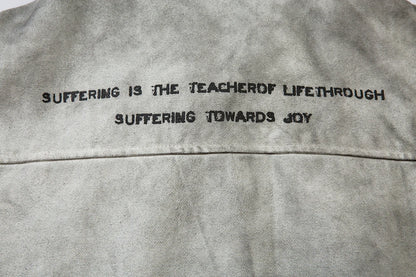 SUFFERING IS THE TEACHEROF LIFETHROUGH
SUFFERING TOWARDS JOY